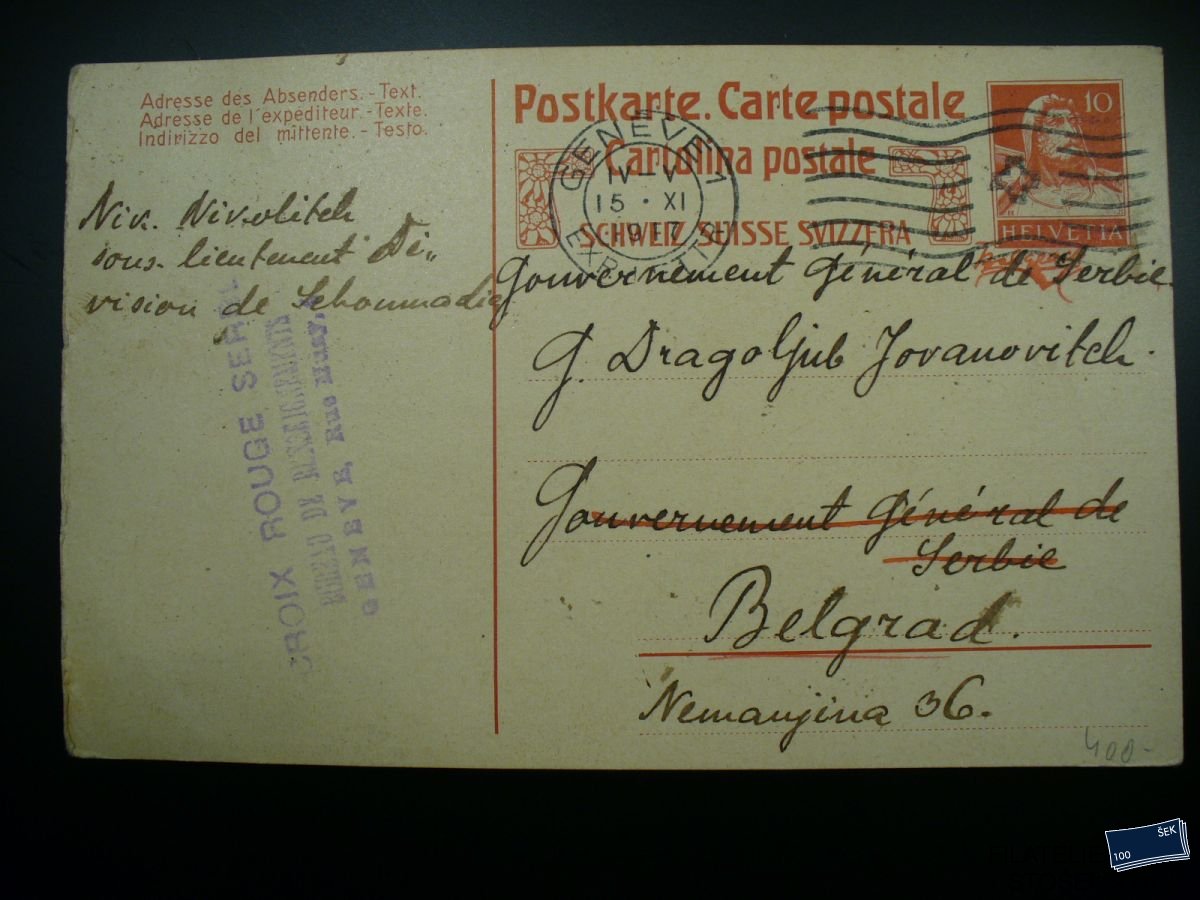 Adresse des Absenders.-Text.
Adresse de l'expéditeur.-Texte.
Indirizzo del mittente.-Testo.
Niv. Nivolitch
sous-lieutenent Di„
vision de Schoumadie
CROIX ROUGE SER
BUREAU DE RENSEIGNEMENTS
GENÈVE, Rue Musy,
Postkarte. Carte postale
Cartolina postale
SCHWEIZ SUISSE SVIZZERA
10
HELVETIA
GENÈVE 1
IV-V
15 · XI
1917
Gouvernement Général de Serbie.
G. Dragoljub Jovanovitch.
Gouvernement Général de
Serbie
Belgrad.
Nemanjina 36.
400-
ŠEK
100